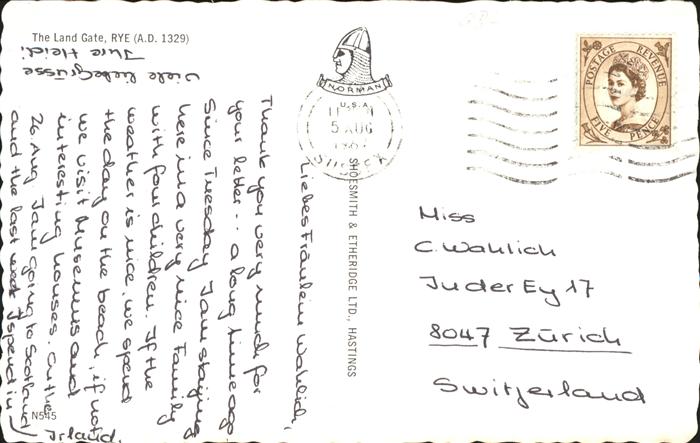 The Land Gate, RYE (A.D. 1329)
Liebes Fräulein Wahlich,
Thank you very much for
your letter.. a long time ago
Since Tuesday I am staying
here in a very nice Family
with four children. If the
weather is nice, we spend
the day on the beach, if not
we visit Museums and
interesting houses. On the
26 Aug. I am going to Scotland
and the last week I spend in
Irland.
Viele liebe Grüsse
Ihre Heidi
N545
NORMAN
U.S.A
5 AUG
SUSSEX
SHOESMITH & ETHERIDGE LTD., HASTINGS
POSTAGE REVENUE
FIVE PENCE
Miss
C. Wahlich
In der Ey 17
8047 Zürich
Switzerland